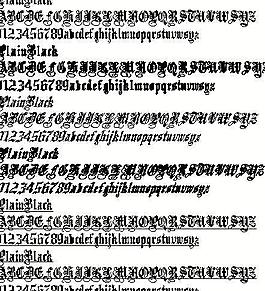 PlainBlack
ABCDEFGHIJKLMNOPQRSTUVWXYZ
0123456789abcdefghijklmnopqrstuvwxyz
PlainBlack
ABCDEFGHIJKLMNOPQRSTUVWXYZ
0123456789abcdefghijklmnopqrstuvwxyz
PlainBlack
ABCDEFGHIJKLMNOPQRSTUVWXYZ
0123456789abcdefghijklmnopqrstuvwxyz
PlainBlack
ABCDEFGHIJKLMNOPQRSTUVWXYZ
0123456789abcdefghijklmnopqrstuvwxyz
PlainBlack
ABCDEFGHIJKLMNOPQRSTUVWXYZ
0123456789abcdefghijklmnopqrstuvwxyz
PlainBlack
ABCDEFGHIJKLMNOPQRSTUVWXYZ
0123456789abcdefghijklmnopqrstuvwxyz